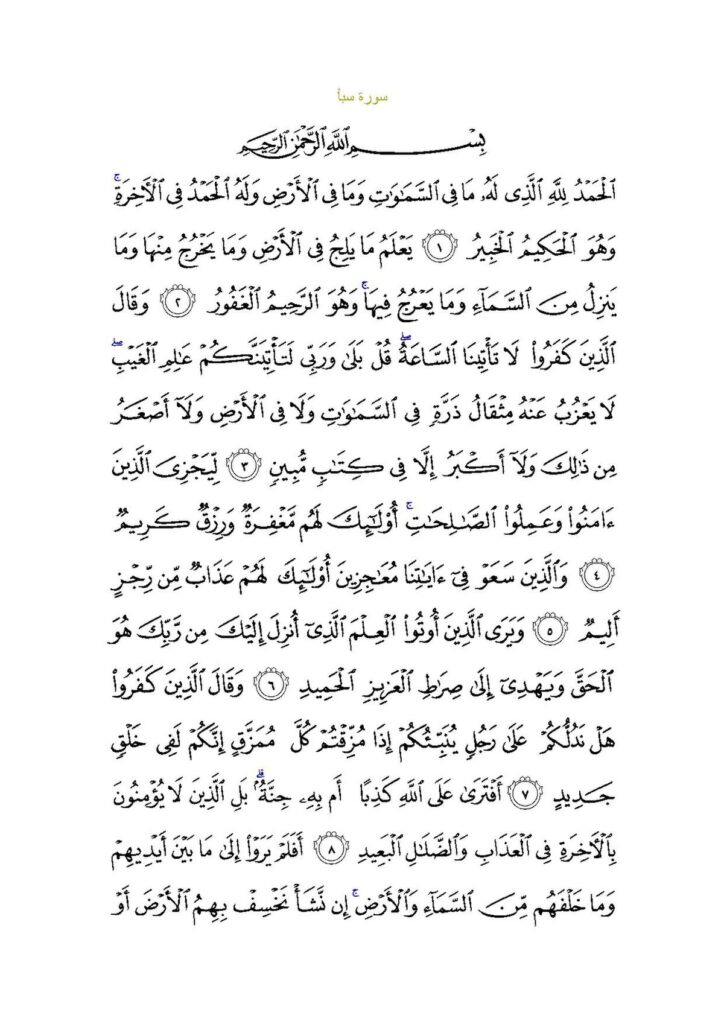 سورة سبأ
بِسْمِ ٱللَّهِ ٱلرَّحْمَٰنِ ٱلرَّحِيمِ
ٱلْحَمْدُ لِلَّهِ ٱلَّذِى لَهُۥ مَا فِى ٱلسَّمَٰوَٰتِ وَمَا فِى ٱلْأَرْضِ وَلَهُ ٱلْحَمْدُ فِى ٱلْـَٔاخِرَةِ ۚ
وَهُوَ ٱلْحَكِيمُ ٱلْخَبِيرُ ﴿١﴾ يَعْلَمُ مَا يَلِجُ فِى ٱلْأَرْضِ وَمَا يَخْرُجُ مِنْهَا وَمَا
يَنزِلُ مِنَ ٱلسَّمَآءِ وَمَا يَعْرُجُ فِيهَا ۚ وَهُوَ ٱلرَّحِيمُ ٱلْغَفُورُ ﴿٢﴾ وَقَالَ
ٱلَّذِينَ كَفَرُوا۟ لَا تَأْتِينَا ٱلسَّاعَةُ ۖ قُلْ بَلَىٰ وَرَبِّى لَتَأْتِيَنَّكُمْ عَٰلِمِ ٱلْغَيْبِ ۖ
لَا يَعْزُبُ عَنْهُ مِثْقَالُ ذَرَّةٍ فِى ٱلسَّمَٰوَٰتِ وَلَا فِى ٱلْأَرْضِ وَلَآ أَصْغَرُ
مِن ذَٰلِكَ وَلَآ أَكْبَرُ إِلَّا فِى كِتَٰبٍ مُّبِينٍ ﴿٣﴾ لِّيَجْزِىَ ٱلَّذِينَ
ءَامَنُوا۟ وَعَمِلُوا۟ ٱلصَّٰلِحَٰتِ ۚ أُو۟لَٰٓئِكَ لَهُم مَّغْفِرَةٌ وَرِزْقٌ كَرِيمٌ
﴿٤﴾ وَٱلَّذِينَ سَعَوْ فِىٓ ءَايَٰتِنَا مُعَٰجِزِينَ أُو۟لَٰٓئِكَ لَهُمْ عَذَابٌ مِّن رِّجْزٍ
أَلِيمٌ ﴿٥﴾ وَيَرَى ٱلَّذِينَ أُوتُوا۟ ٱلْعِلْمَ ٱلَّذِىٓ أُنزِلَ إِلَيْكَ مِن رَّبِّكَ هُوَ
ٱلْحَقَّ وَيَهْدِىٓ إِلَىٰ صِرَٰطِ ٱلْعَزِيزِ ٱلْحَمِيدِ ﴿٦﴾ وَقَالَ ٱلَّذِينَ كَفَرُوا۟
هَلْ نَدُلُّكُمْ عَلَىٰ رَجُلٍ يُنَبِّئُكُمْ إِذَا مُزِّقْتُمْ كُلَّ مُمَزَّقٍ إِنَّكُمْ لَفِى خَلْقٍ
جَدِيدٍ ﴿٧﴾ أَفْتَرَىٰ عَلَى ٱللَّهِ كَذِبًا أَم بِهِۦ جِنَّةٌۢ ۗ بَلِ ٱلَّذِينَ لَا يُؤْمِنُونَ
بِٱلْـَٔاخِرَةِ فِى ٱلْعَذَابِ وَٱلضَّلَٰلِ ٱلْبَعِيدِ ﴿٨﴾ أَفَلَمْ يَرَوْا۟ إِلَىٰ مَا بَيْنَ أَيْدِيهِمْ
وَمَا خَلْفَهُم مِّنَ ٱلسَّمَآءِ وَٱلْأَرْضِ ۚ إِن نَّشَأْ نَخْسِفْ بِهِمُ ٱلْأَرْضَ أَوْ